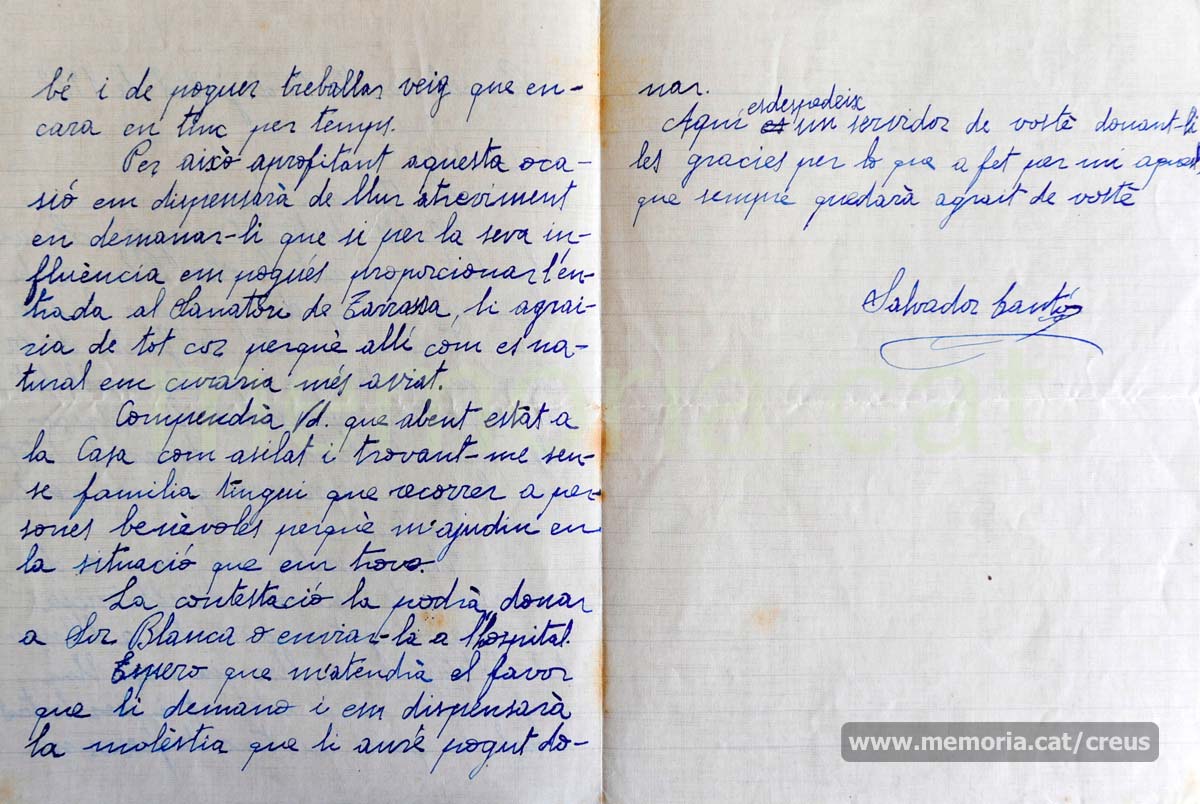 bé i de poguer treballar veig que en-
cara en tinc per temps.
Per això aprofitant aquesta oca-
sió em dispensarà de llur atreviment
en demanar-li que si per la seva in-
fluència em pogués proporcionar l'en-
trada al Sanatori de Tarrassa, li agrai-
ria de tot cor perquè allí com es na-
tural em curaria més aviat.
Comprendrà Vd. que abent estàt a
la Casa com asilat i trovant-me sen-
se familia tingui que recorrer a per-
sones benèvoles perquè m'ajudin en
la situació que em trovo.
La contestació la podrà donar
a Sor Blanca o enviar-la a l'hospital.
Espero que m'atendrà el favor
que li demano i em dispensarà
la molèstia que li auré pogut do-
nar.
esdespedeix
Aquí un servidor de vostè donant-li
les gracies per lo que a fet per mi aquest
que sempre quedarà agrait de vostè
Salvador Cantó
memoria.cat
www.memoria.cat/creus